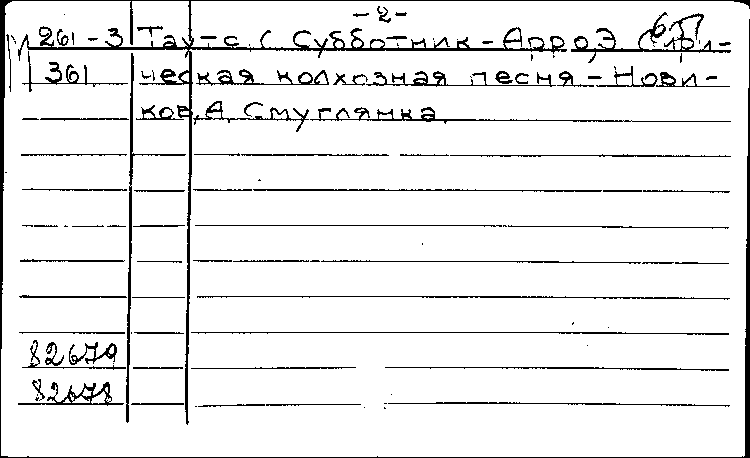 -2-
М 261-3 Таутс. ( Субботник - Арро,Э Лири-
361 ческая колхозная песня - Нови-
ков,А. Смуглянка.
82679
82678